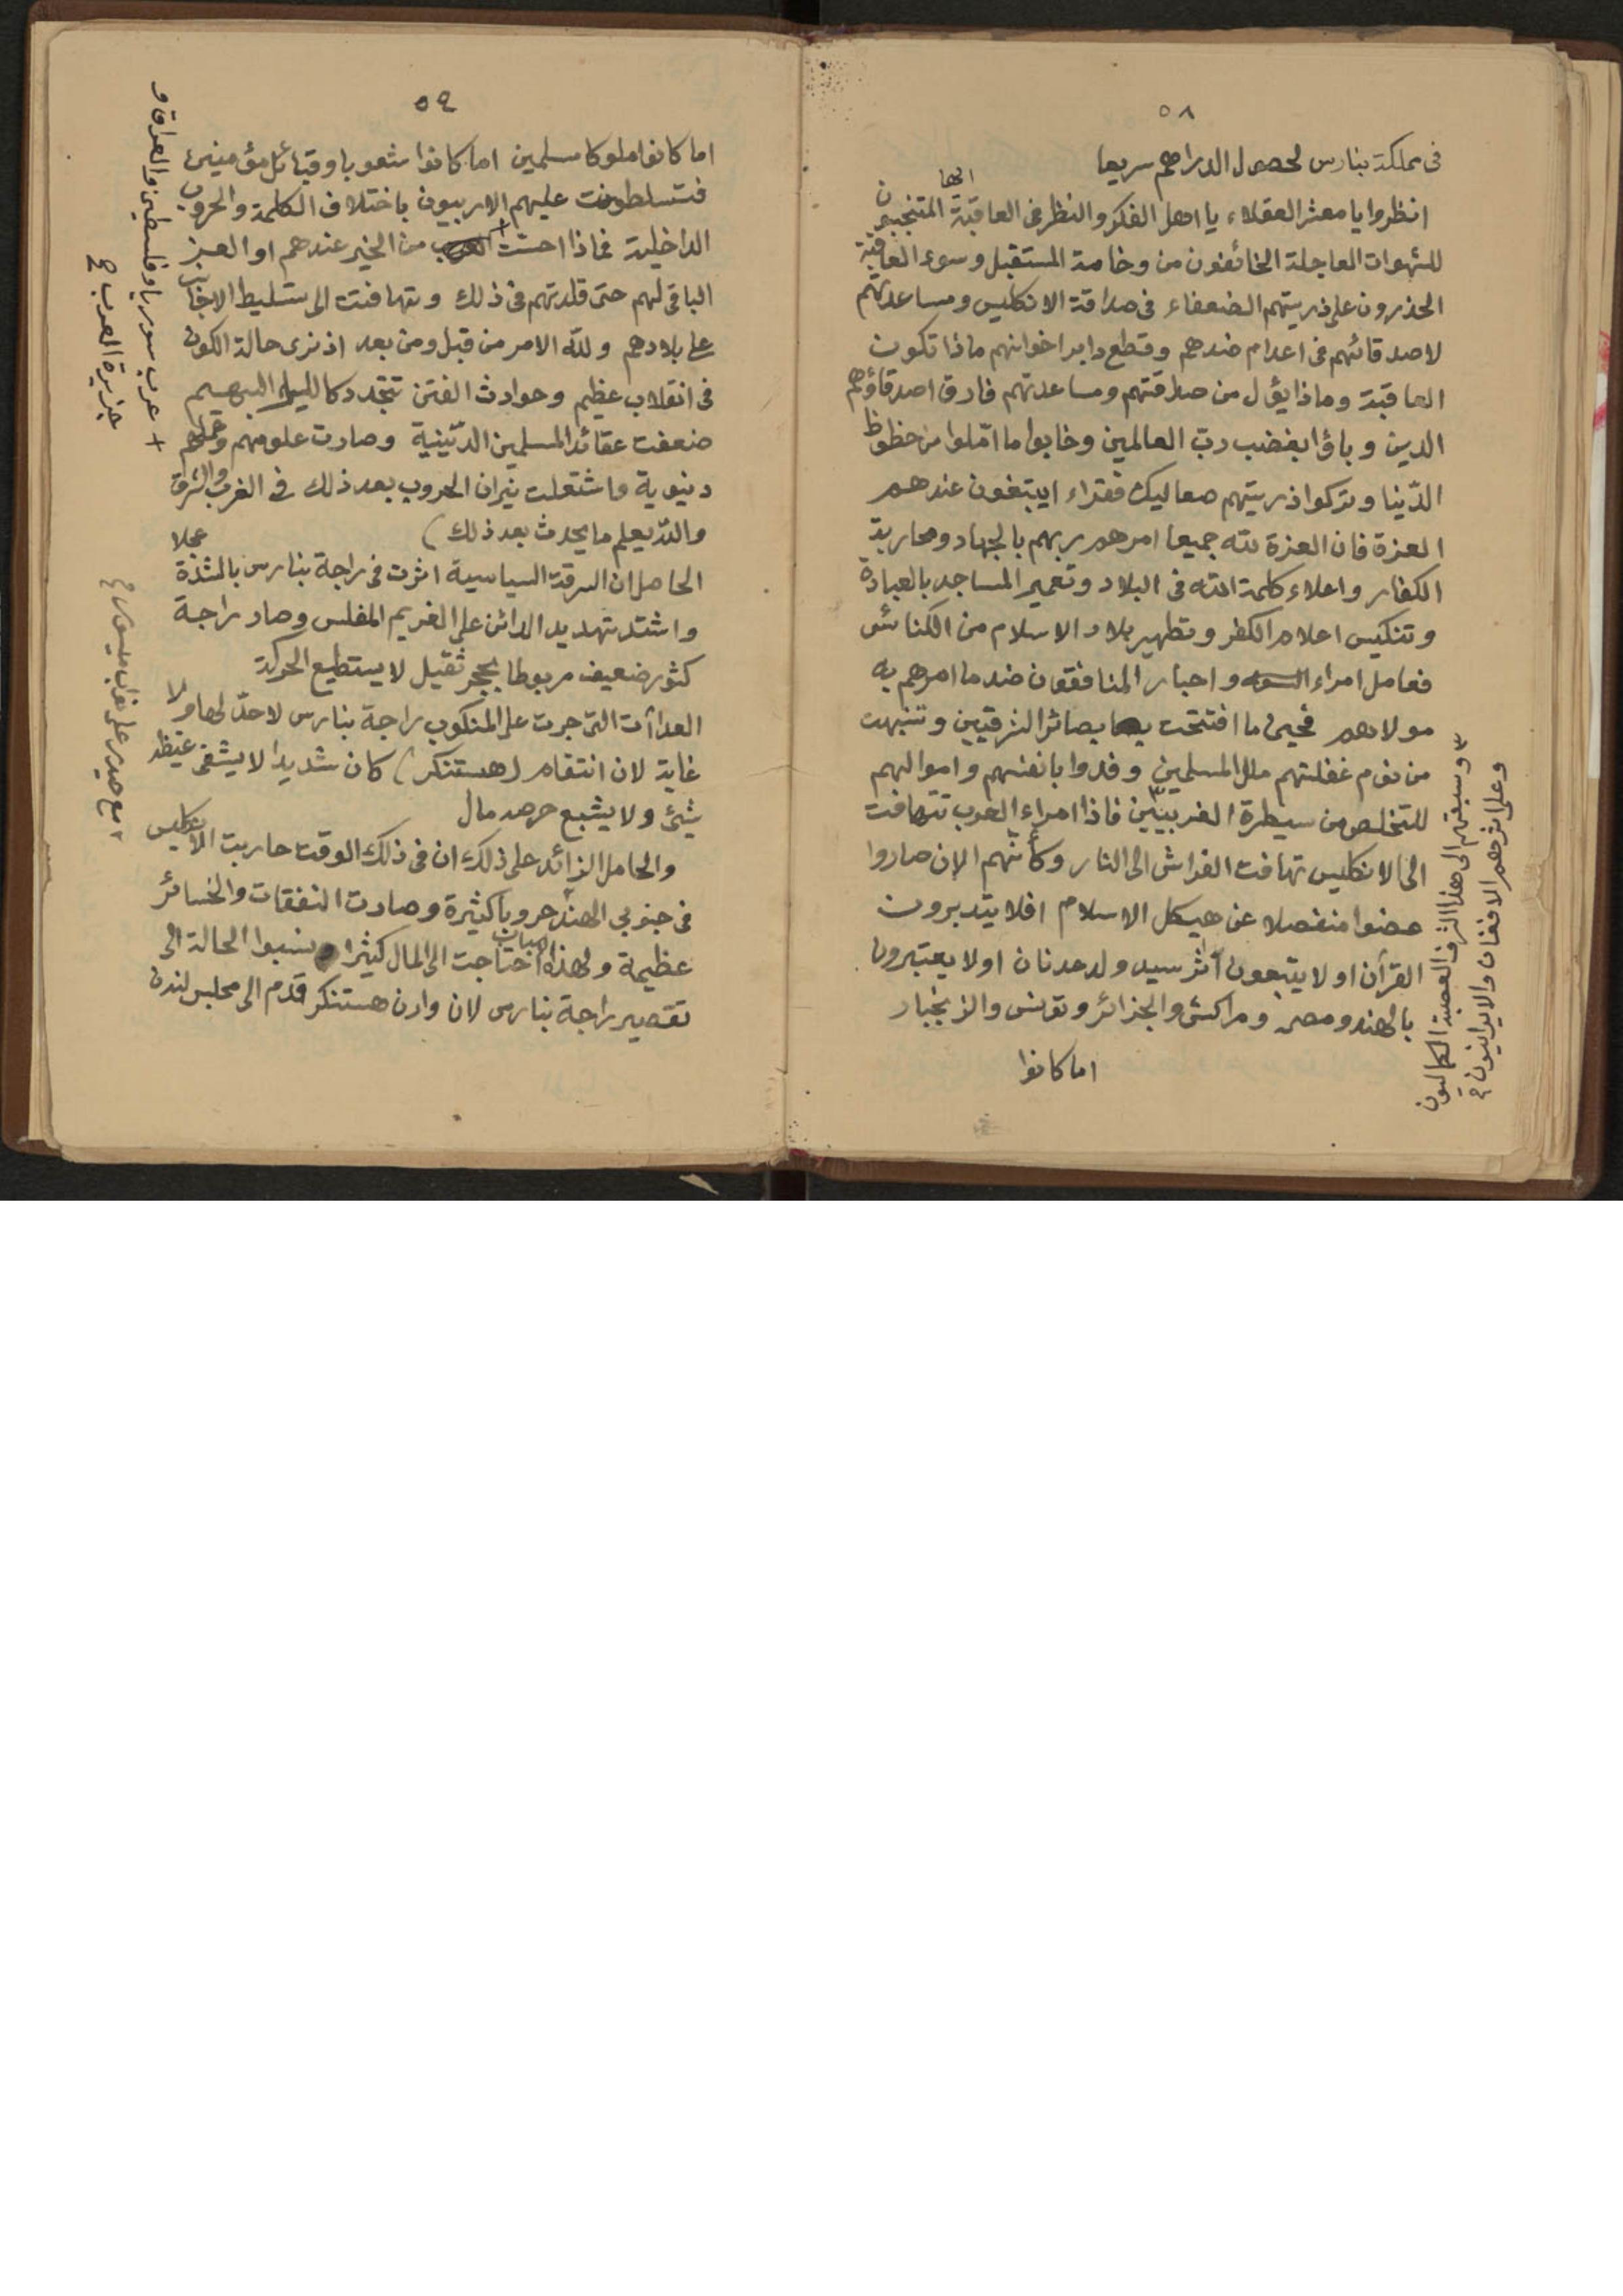 ٥٨
فى مملكة بنارس لحصول الدراهم سريعا
انظروا يا معشر العقلاء يا اهل الفكر والنظر فى العاقبة المتجنبون
ايها
للشهوات العاجلة الخائفون من وخامة المستقبل وسوء العاقبة
الحذرون على ذريتهم الضعفاء فى صداقة الانكليس ومساعدتهم
لاصدقائهم فى اعدام ضدهم وقطع دابر اخوانهم ماذا تكون
العاقبة وماذا يؤل من صداقتهم ومساعدتهم فارق اصدقاؤهم
الدين وباؤا بغضب رب العالمين وخابوا ما امّلوا من حظوظ
الدّنيا وتركوا ذريتهم صعاليك فقراء ايبتغون عندهم
العزة فان العزة لله جميعا امرهم ربهم بالجهاد ومحاربة
الكفار واعلاء كلمة الله فى البلاد وتعمير المساجد بالعبادة
وتنكيس اعلام الكفر وتطهير بلاد الاسلام من الكنائس
فعامل امراء السوء واحبار المنافقون ضد ما امرهم به
مولاهم فحين ما افتتحت بصائر الشرقيين وتنبهت
من نوم غفلتهم ملل المسلمين وفدوا بانفسهم واموالهم
للتخلص من سيطرة الغربيّين ٣ فاذا امراء العرب تتهافت
الى الانكليس تهافت الفراش الى النار وكأنّهم الان صاروا
عضوا منفصلا عن هيكل الاسلام افلا يتدبرون
القرآن او لا يتبعون اثر سيد ولد عدنان او لا يعتبرون
بالهند ومصر ومراكش والجزائر وتونس والزنجبار
اما كانوا
٣ وسبقتهم الى هذا الشرف العصبة الكماليون
وعلى اثرهم الافغان والايرانيون
٥٩
اما كانوا ملوكا مسلمين اما كانوا شعوبا وقبائل مؤمنين
فتسلطونت عليهم الاربيون باختلاف الكلمة والحروب
الداخلية فماذا احست + من الخير عندهم او العز
الباقى لهم حتى قلدتهم فى ذلك وتهافتت الى تسليط الاجانب
على بلادهم ولله الامر من قبل ومن بعد اذ نرى حالة الكون
فى انقلاب عظيم وحوادث الفتن تتجدد كالليل البهيم
ضعفت عقائد المسلمين الدّينية وصارت علومهم
دنيوية واشتعلت نيران الحروب بعد ذلك فى الغرب والشرق
والله يعلم ما يحدث بعد ذلك)
الحاصل ان السرقة السياسية اثرت فى راجة بنارس بالشدة
واشتد تهديد الدائن على الغريم المفلس وصار راجة
كثور ضعيف مربوطا بحجر ثقيل لا يستطيع الحركة
العداآت التى جرت على المنكوب راجة بنارس لا حدّ لها ولا
غاية لان انتقام (هستنكر) كان شديدا لا يشفى غيظه
شئ ولا يشبع حرصه مال
والحامل الزائد على ذلك ان فى ذلك الوقت حاربت الانكليس
فى جنوبي الهند حروبا كثيرة وصارت النفقات والخسائر
عظيمة ولهذا احتاجت الى المال كثيرا ونسبوا الحالة الى
تقصير راجة بنارس لان وارن هستنكر قدم الى مجلس لندن
+ عرب سوريا وفلسطين والعراق و
جزيرة العرب
٢ مع حيدر على نواب ميسور